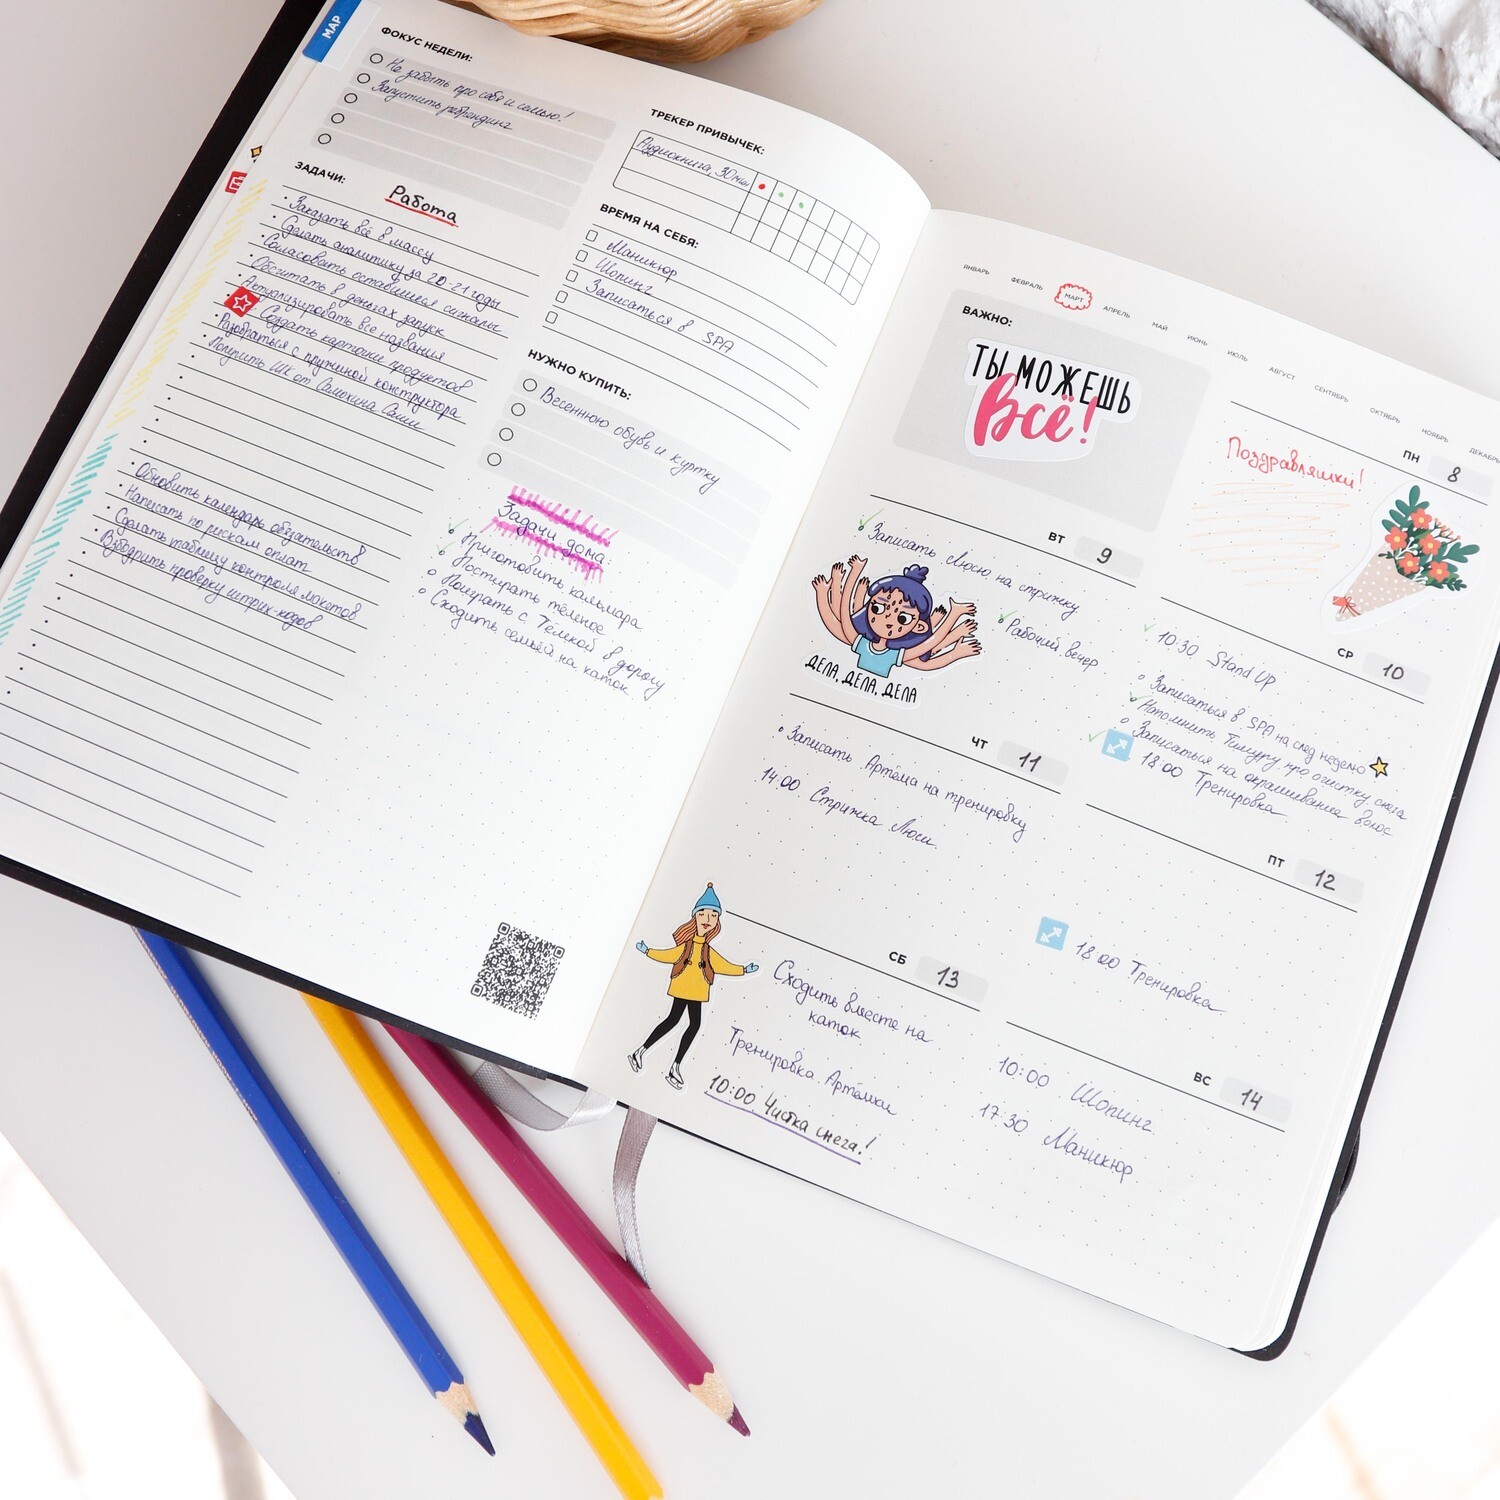 МАР
ФОКУС НЕДЕЛИ:
Не забыть про себя и семью!
Запустить ребрендинг
ЗАДАЧИ:
Работа
Заказать всё в массу
Сделать аналитику за 20-21 годы
Согласовать оставшиеся сигналы
Обсчитать в деньгах запуск
Актуализировать все названия
Создать карточки продуктов
Разобраться с пружиной конструктора
Получить ШК от Самохина Саши
Обновить календарь обязательств
Написать по рискам оплат
Сделать таблицу контроля макетов
Взбодрить проверку штрих-кодов
ТРЕКЕР ПРИВЫЧЕК:
Аудиокнига, 30 мин
ВРЕМЯ НА СЕБЯ:
Маникюр
Шопинг
Записаться в SPA
НУЖНО КУПИТЬ:
Весеннюю обувь и куртку
Задачи дома
Приготовить кальмара
Постирать тёмное
Поиграть с Тёмкой в дорогу
Сходить семьёй на каток
ЯНВАРЬ ФЕВРАЛЬ МАРТ АПРЕЛЬ МАЙ ИЮНЬ ИЮЛЬ АВГУСТ СЕНТЯБРЬ ОКТЯБРЬ НОЯБРЬ ДЕКАБРЬ
ВАЖНО:
ТЫ МОЖЕШЬ
Всё!
ПН 8
Поздравляшки!
ВТ 9
Записать Люсю на стрижку
Рабочий вечер
ДЕЛА, ДЕЛА, ДЕЛА
СР 10
10:30 Stand UP
Записаться в SPA на след неделю
Напомнить Тимуру про очистку снега
Записаться на окрашивание волос
18:00 Тренировка
ЧТ 11
Записать Артёма на тренировку
14:00 Стрижка Люси
ПТ 12
18 00 Тренировка
СБ 13
Сходить вместе на
каток
Тренировка Артёмки
10:00 Чистка снега!
ВС 14
10:00 Шопинг
17 30 Маникюр